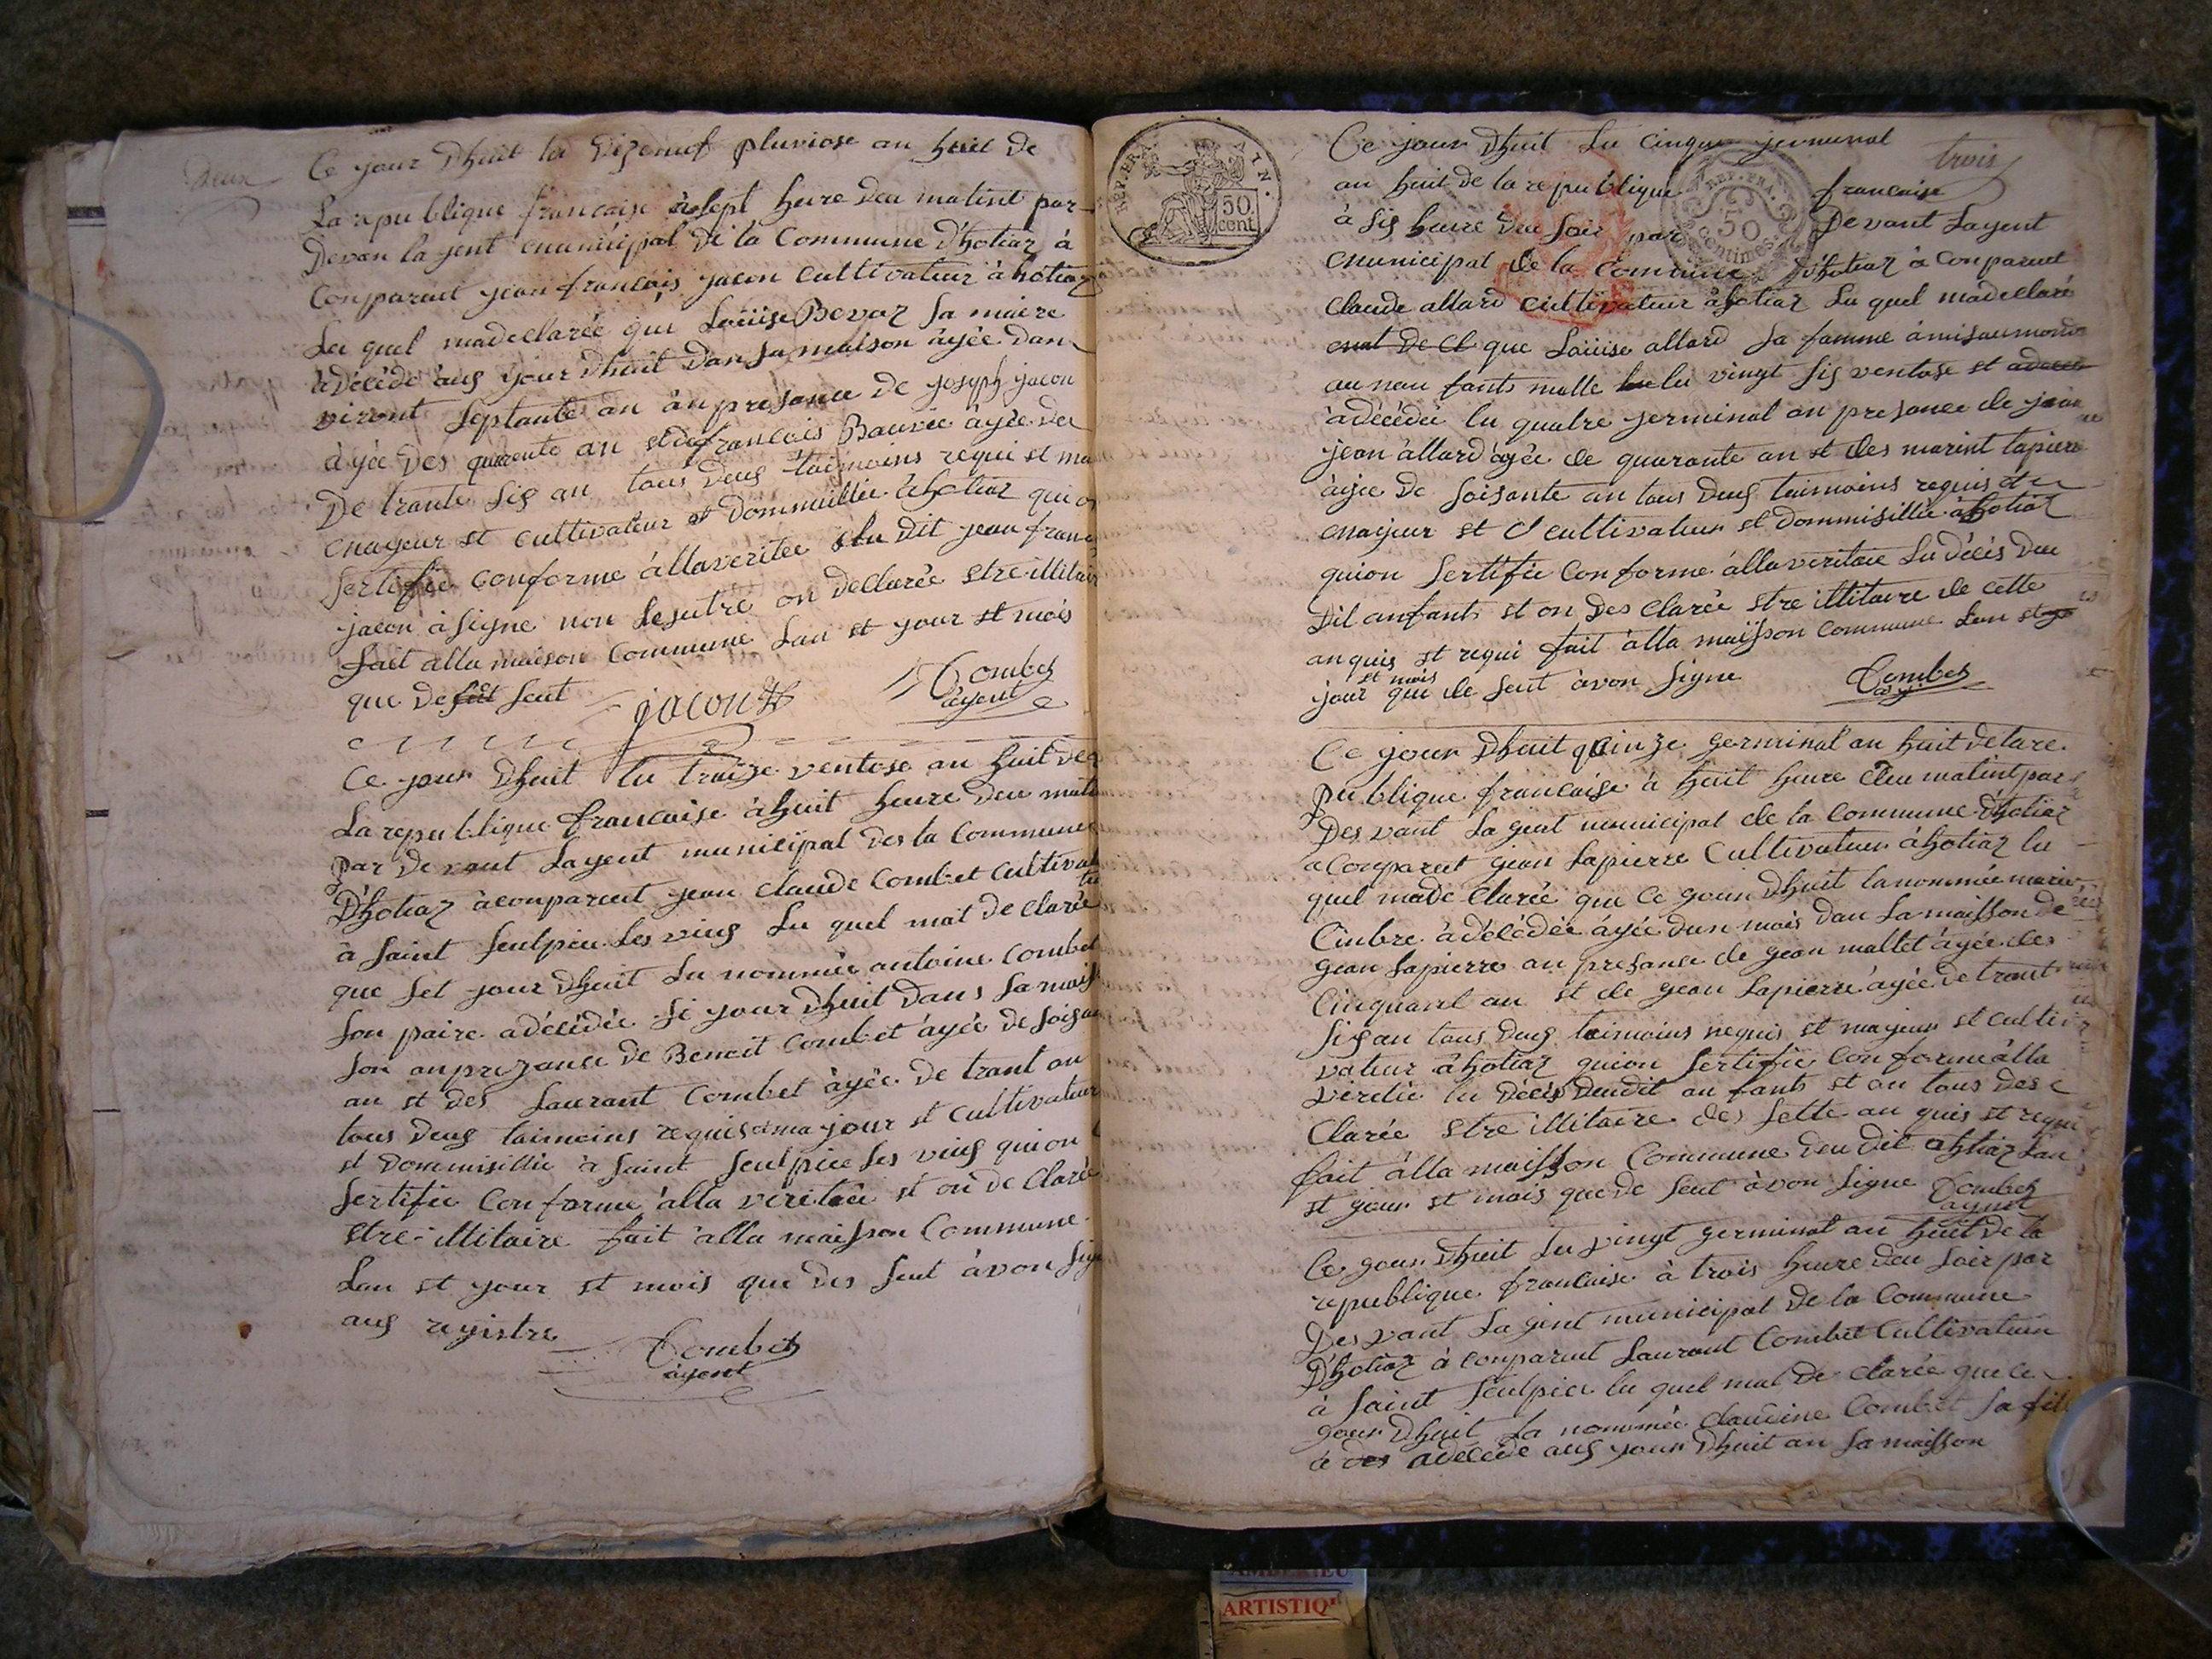 deux
Ce jour Dhuit lu Dizeneuf pluviose an huit de
La republique francaise à sept heure deu matint par
Devan lagent municipal de la Commune D'hotiaz à
Conparuet jean francois jacon Cultivateur à hotiaz
Lu quel madeclarée que Louise Bevoz sa maire
à décédé aug jour Dhuit dan sa maison àyée dan
viront septante an àn presance de joseph jacon
àyée Des quarente an et de francois Bauvée àyée deu
De trante sig an tous deug taimoins requi et ma
majeur et cultivateur et dommisillie à hotiaz qui on
sertifie conforme à lla veritee et lu Dit jean franc
jacon à signe non lesutre on declarée etre illitair
fait alla maison Commune lan et jour et mois
que de seut
jacon
Combet
àgent
Ce jour Dhuit lu traize ventose an huit de
La republique francaise à huit heure deu mati
par devant Layent municipal des la Commune
D'hotiaz à conpareut jean claude Combet Cultivat
à saint seulpieu les vieug lu quel mat de clarée
que set jour dhuit lu nommée antoine Combet
son paire adécédée se jour dhuit dans sa mais
son anprezance de Benoit Combet àyée de soisan
an et des Laurant Combet àyée de trant an
tous deug taimoins requis et majour et cultivateur
et dommisillie à saint seulpice les vieug qui on
sertifie Conforme à lla veritée et on de Clarée
etre illitaire fait alla maisson Commune
Lan et jour et mois que des seut àvon sign
aug registre
Combet
àgent
REP. FRA.
50
cent
trois
REP. FRA.
50
centimes
Ce jour Dhuit Lu cinque jerminal
an huit de la republique francaise
à sig heure deu soir par Devant Layent
municipal de la commune D'hotiaz à Conparuet
Claude allard cultivateur à hotiaz Lu quel madeclaré
mat de cl que Louise allard sa famme à mis au monde
au nau fants malle lu vingt sig ventose et
àdécédée lu quatre jerminal an presance de jean
jean àllard àgée de quarante an et des marint lapierre
àyée de soisante an tous deug taimoins requis et
majeur et cultivateur et dommisillie à hotiaz
quion sertifie Conforme àlla veritaie Lu décés deu
Dit anfants et on des clarée etre illitaire de cette
anquis et requi fait àlla maisson commune Lan et
et mois
jour que de seut àvon signe
Combet
Ce jour Dhuit quinze germinal an huit de la re
publique francaise à huit heure deu matint par
Des vant Lagent municipal de la Commune D'hotiaz
à Conparut jean Lapierre Cultivateur à hotiaz lu
quel made clarée que Ce jour Dhuit la nommée marie
Cimbre àdécédée àyée dun mois dan La maisson de
jean Lapierre an presance de jean mallet àyée des
Cinquant an et de jean Lapierre àyée de trant
sig an tous deug taimoins requis et majeur et cultiv
vateur à hotiaz quion sertifie Conforme àlla
veritée lu décés deudit an fants et on tous des
Clarée etre illitaire des sette an quis et requi
fait àlla maisson Commune deu dit ahtiaz Lan
et jour et mois que de seut àvon signe Combet
agent
Ce jour Dhuit Lu vingt germinal an huit de la
republique francaise à trois heure deu soir par
Des vant Lagent municipal de la Commune
D'hotiaz à conparut Laurant Combet Cultivateur
à saint seulpice lu quel mat de clarée que ce
jour Dhuit La nommée claudine Combet sa fill
à des adécéde aug jour Dhuit an sa maisson
ARTISTIQ